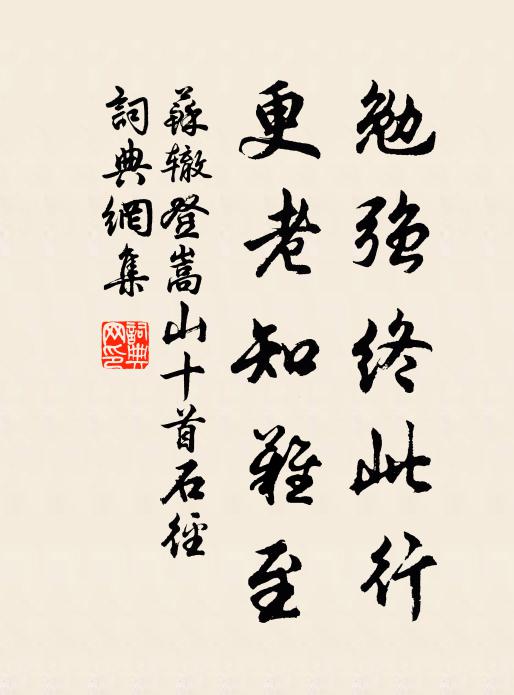 勉强终此行
更老知難至
蘇辙登嵩山十首石徑
詞典網集
詞典網印